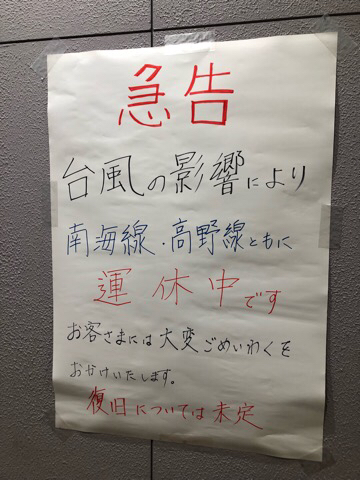 急告
台風の影響により
南海線・高野線ともに
運休中です
お客さまには大変ごめいわくを
おかけいたします。
復旧については未定